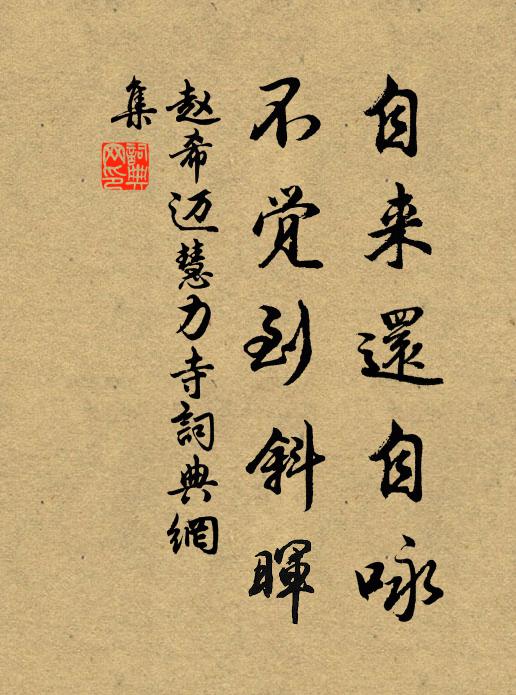 自来還自咏
不觉到斜暉
赵希迈慧力寺詞典網
集
詞典网印